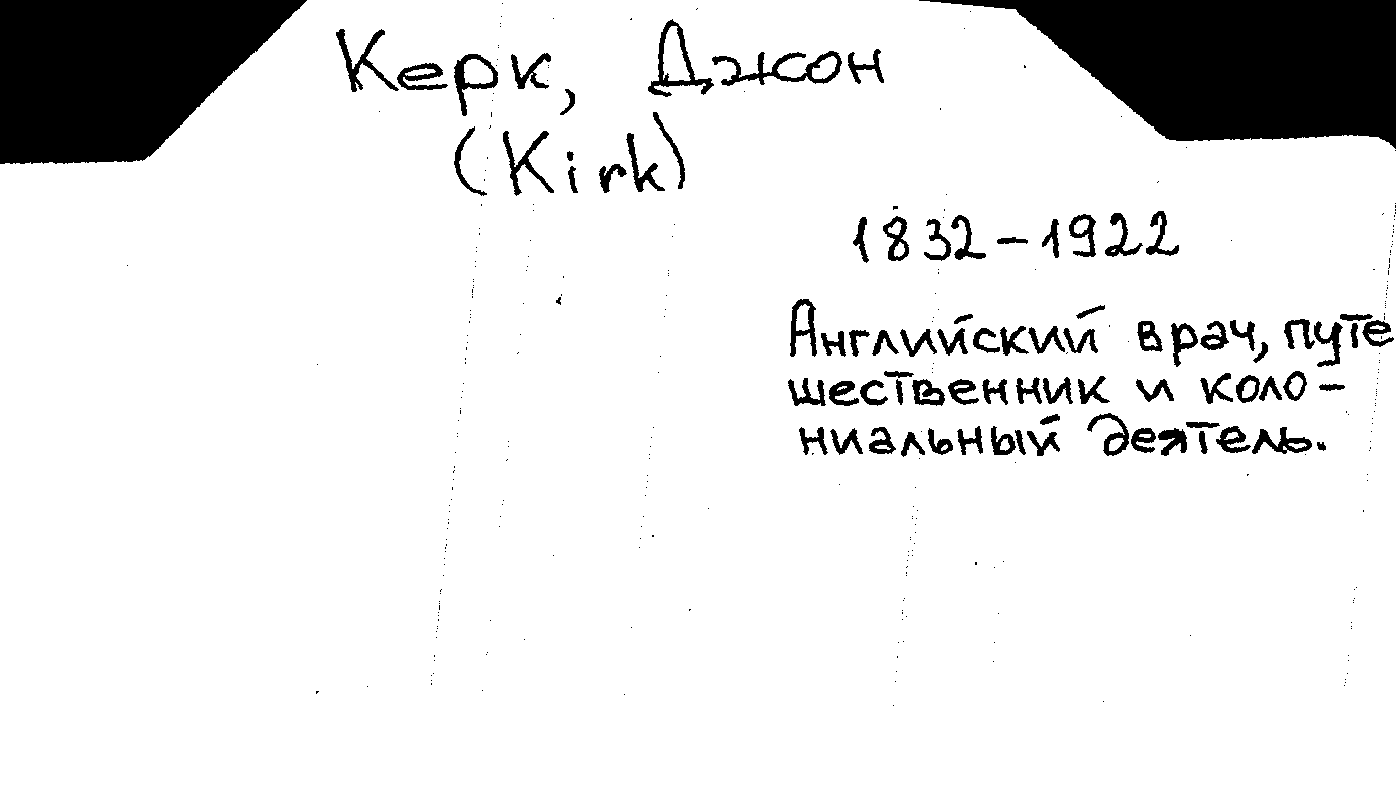 Керк, Джон
(Kirk)
1832-1922
Английский врач, путе
шественник и коло-
ниальный деятель.